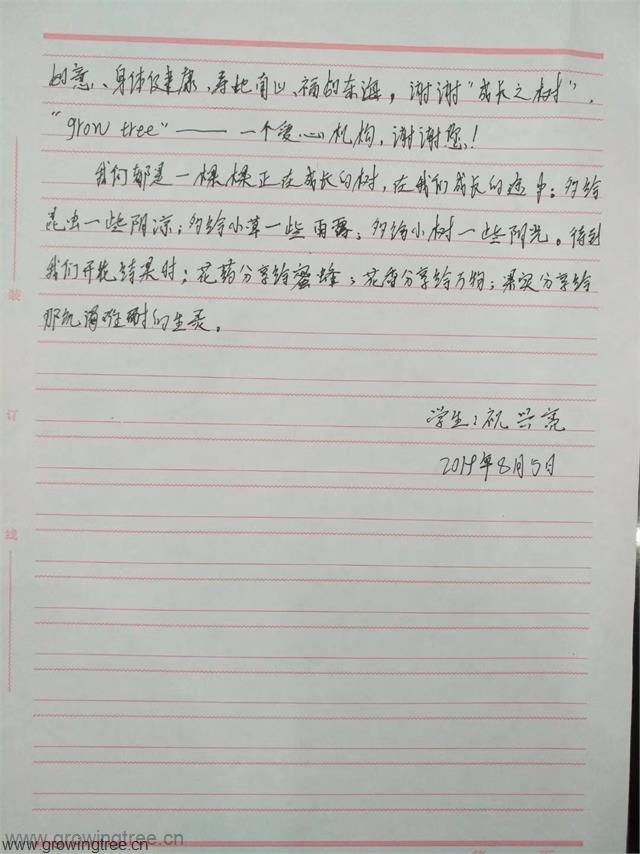 如意、身体健康、寿比南山、福如东海。谢谢“成长之树”，
“grow tree”—— 一个爱心机构，谢谢您！
我们都是一棵棵正在成长的树，在我们成长的途中：多给
昆虫一些阴凉；多给小草一些雨露；多给小树一些阳光。待到
我们开花结果时：花蕊分享给蜜蜂；花香分享给万物；果实分享给
那饥渴难耐的生灵。
学生：祝兴亮
2019年8月5日
装
订
线
www.growingtree.cn
www.growingtree.cn